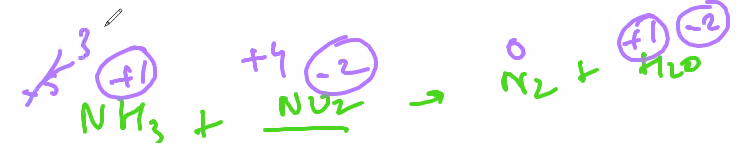 +5 3 +1 +4 -2 0 +1 -2
NH3 + NO2 → N2 + H2O